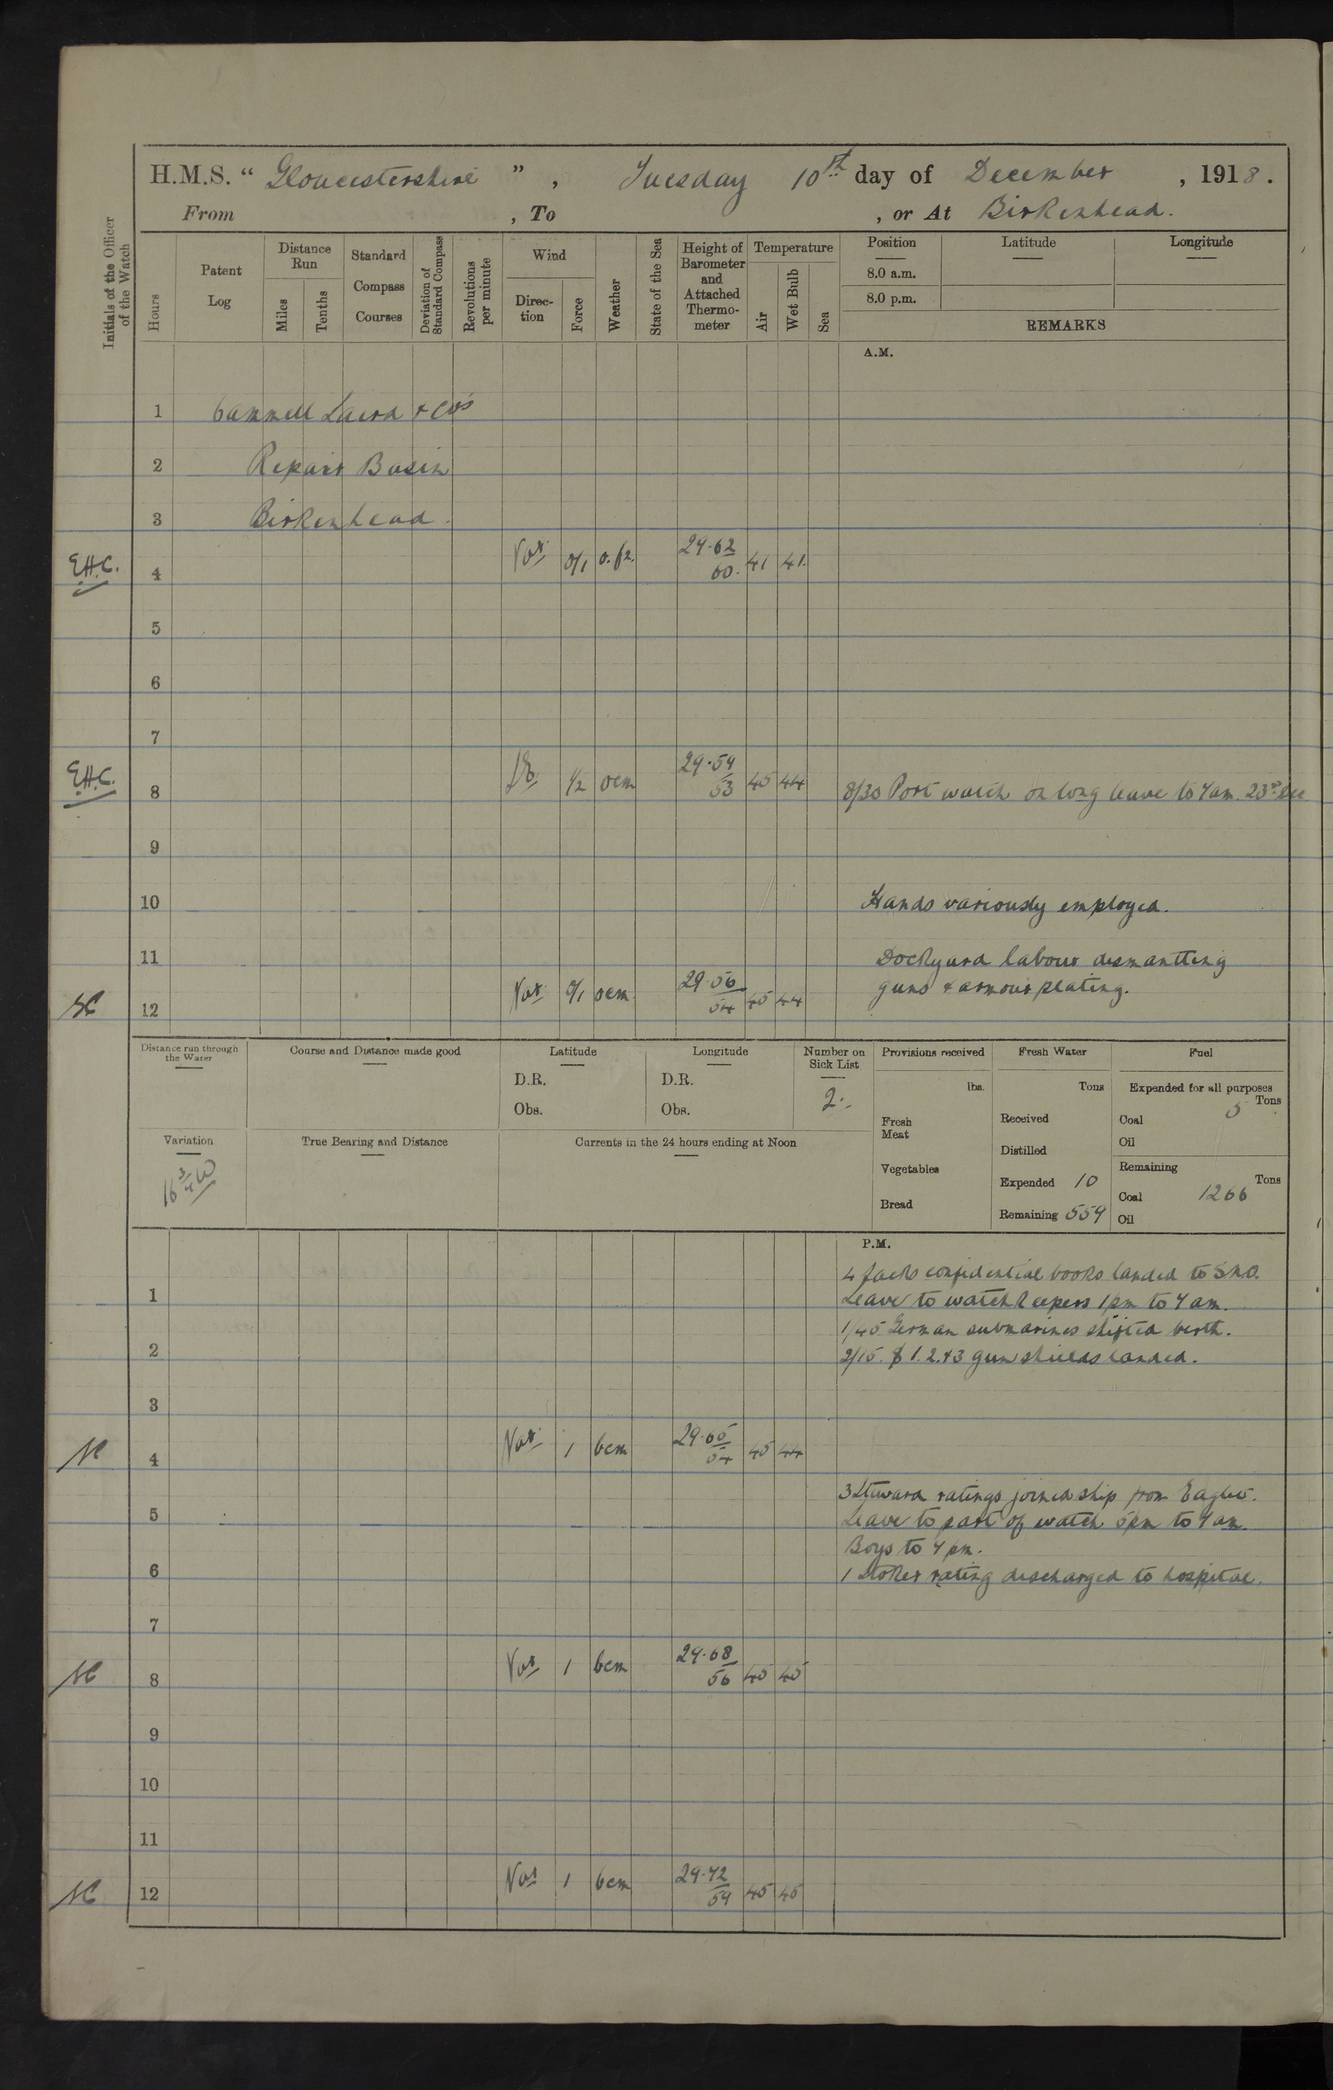 H.M.S. " Gloucestershire " , Tuesday 10th day of December , 1918.
From , To , or At Birkenhead.
Initials of the Officer of the Watch
Hours
Patent Log
Distance Run
Miles
Tenths
Standard Compass Courses
Deviation of Standard Compass
Revolutions per minute
Wind
Direc-tion
Force
Weather
State of the Sea
Height of Barometer and Attached Thermo-meter
Temperature
Air
Wet Bulb
Sea
Position
Latitude
Longitude
8.0 a.m.
8.0 p.m.
REMARKS
A.M.
1 Cammell Laird & Co's
2 Repair Basin
3 Birkenhead.
E.H.C. 4 Var. 0/1 o.fz. 29.62 60. 41 41.
5
6
7
E.H.C. 8 1/2 ocm 29.54 53 45 44 8/30 Port watch on long leave to 7am. 23rd Dec
9
10 Hands variously employed.
11 Dockyard labour dismantling
guns & armour plating.
12 Var. 0/1 ocm 29.56 54 45 44
Distance run through the Water
Course and Distance made good
Latitude
D.R.
Obs.
Longitude
D.R.
Obs.
Number on Sick List
2.
Provisions received
lbs.
Fresh Meat
Vegetables
Bread
Fresh Water
Tons
Received
Distilled
Expended 10
Remaining 559
Fuel
Expended for all purposes
Tons
Coal 5
Oil
Remaining
Tons
Coal 1266
Oil
Variation
16 3/4 W
True Bearing and Distance
Currents in the 24 hours ending at Noon
P.M.
4 confidential books landed to S.N.O.
1 Leave to watchkeepers 1pm to 7am.
1/45 German submarines shifted berth.
2 2/15. 1.2.&3 gun shields landed.
3
4 Var. 1 bcm 29.65 54 45 44
3 Steward ratings joined ship from Eaglet.
5 Leave to part of watch 5pm to 7am.
Boys to 7pm.
6 1 Stoker rating discharged to hospital.
7
8 Var 1 bcm 29.68 56 45 45
9
10
11
12 Var 1 bcm 29.72 59 45 45